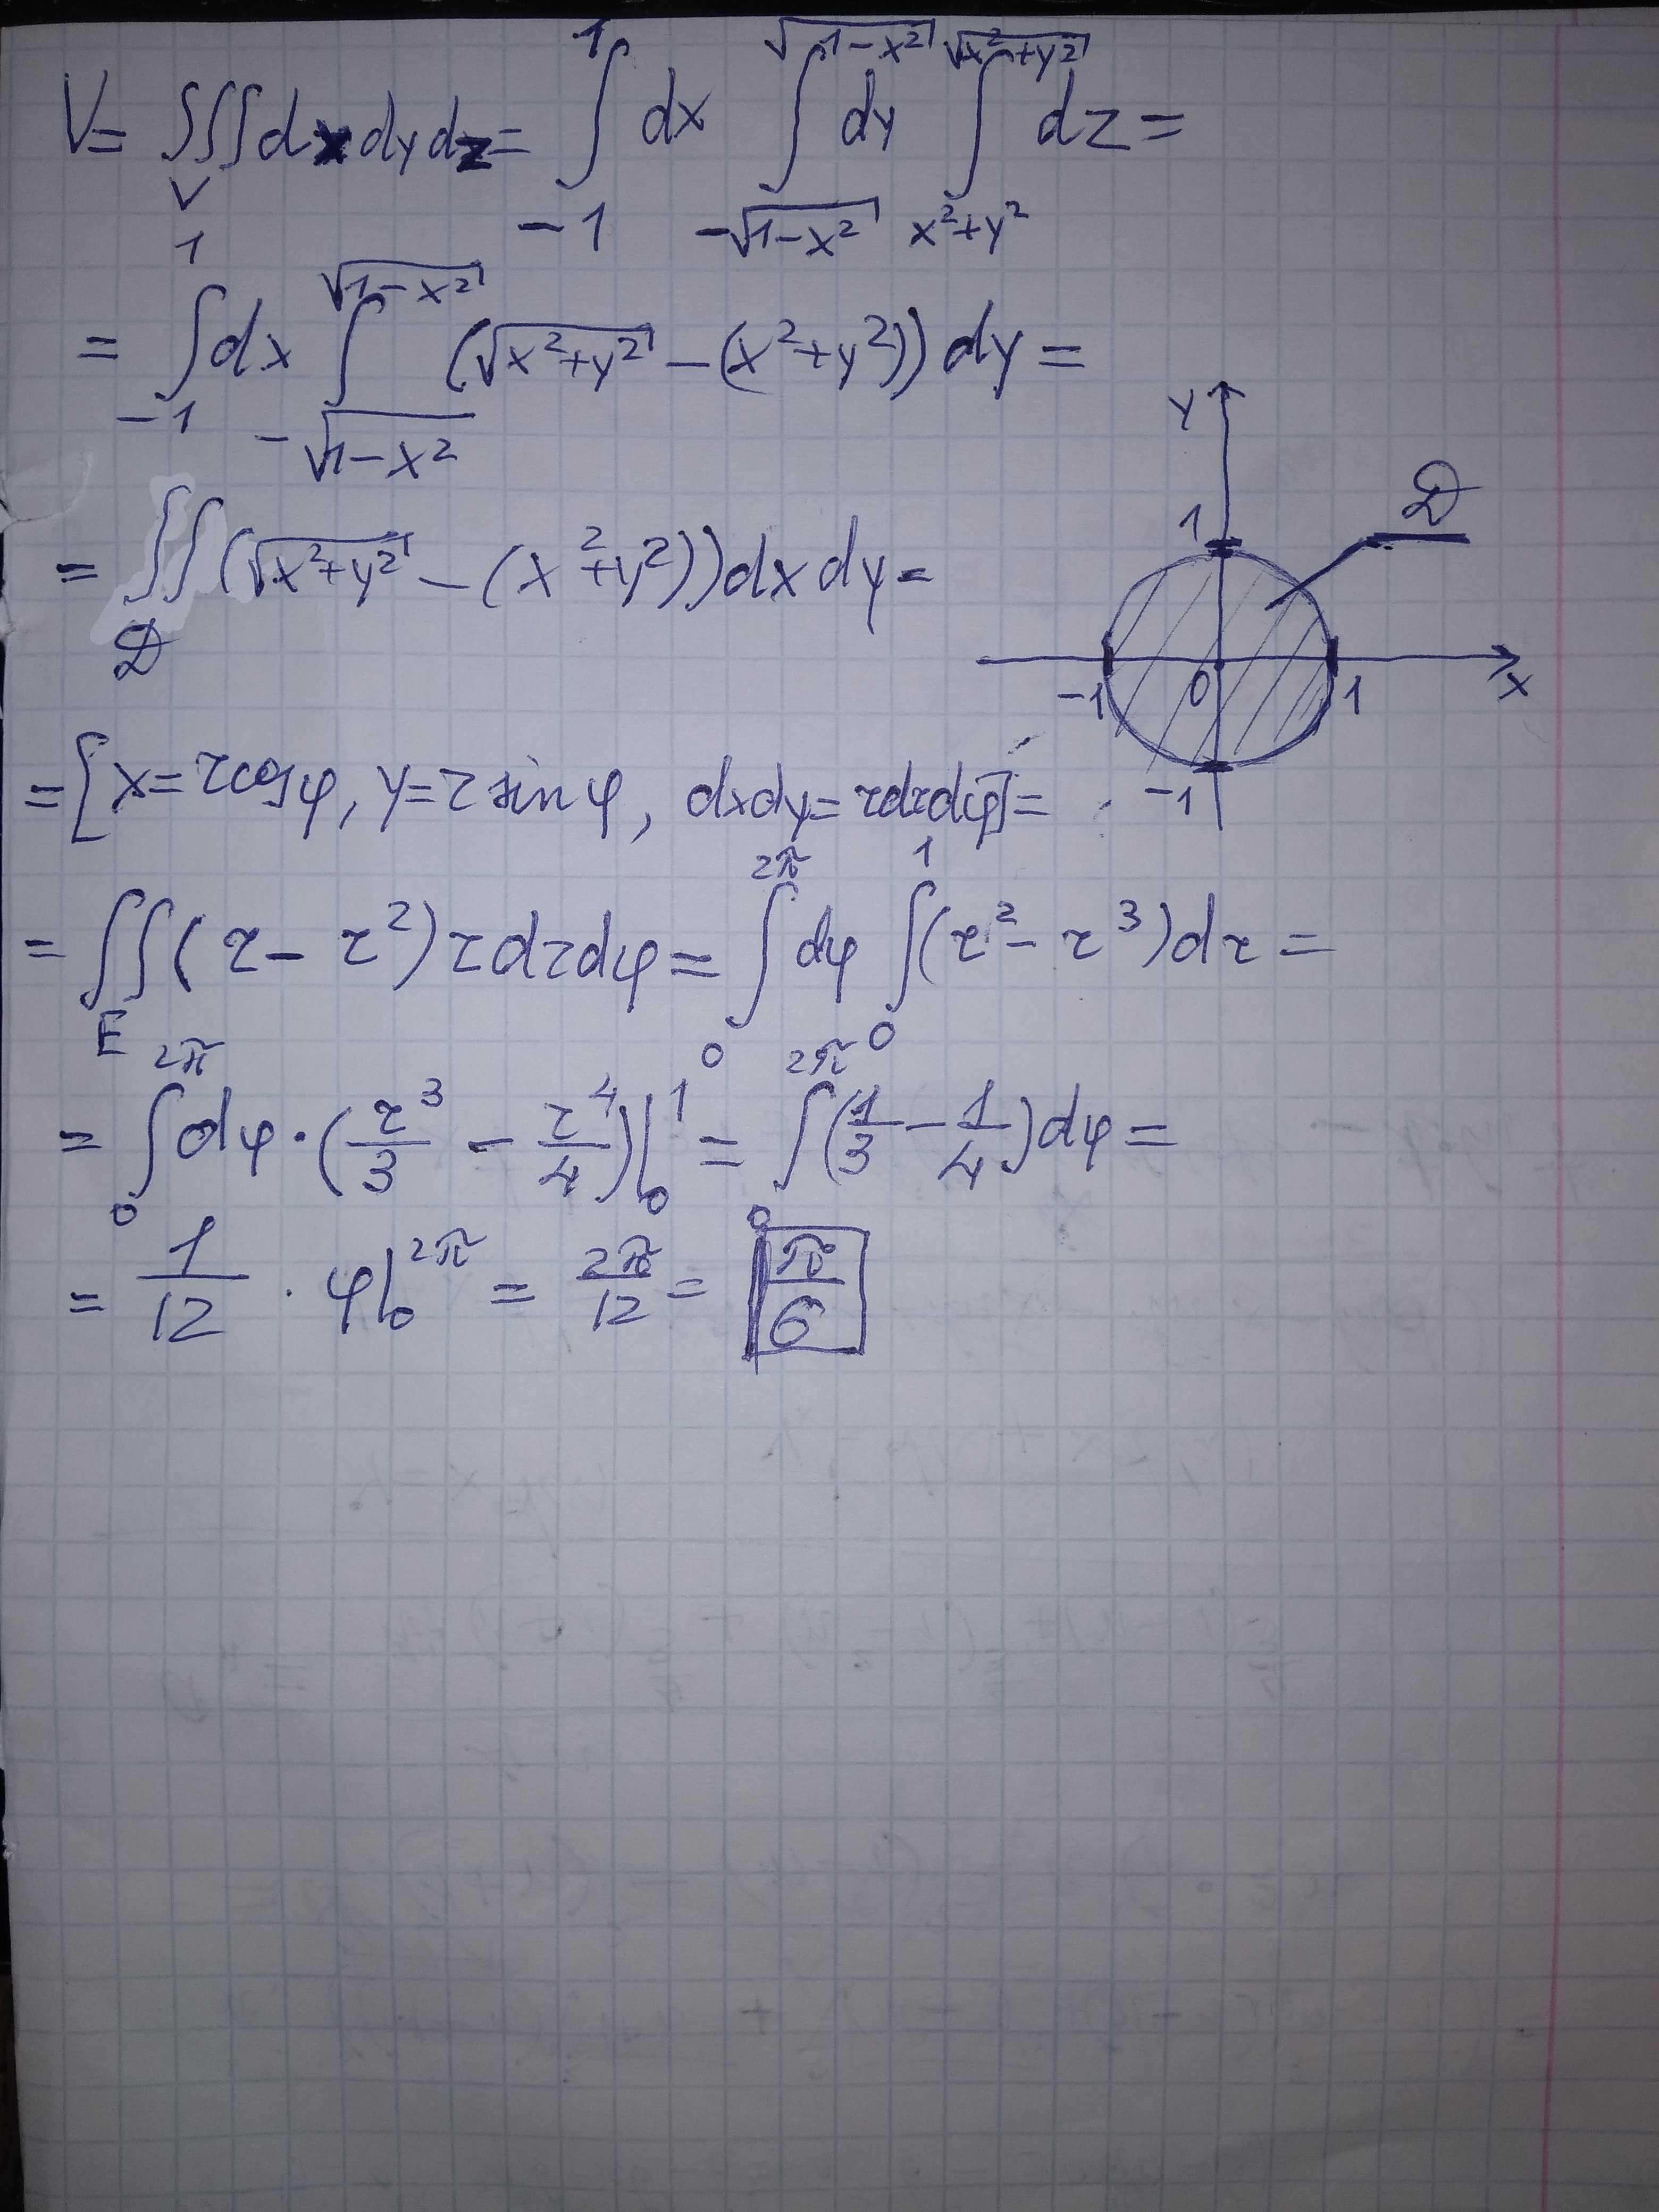 V = ∭_V dx dy dz = ∫_{-1}^{1} dx ∫_{-√(1-x²)}^{√(1-x²)} dy ∫_{x²+y²}^{√(x²+y²)} dz =
= ∫_{-1}^{1} dx ∫_{-√(1-x²)}^{√(1-x²)} (√(x²+y²) - (x²+y²)) dy =
= ∬_D (√(x²+y²) - (x²+y²)) dx dy =
y
D
1
-1 0 1 x
-1
= [x = r cos φ, y = r sin φ, dxdy = r dr dφ] =
= ∬_E (r - r²) r dr dφ = ∫_0^{2π} dφ ∫_0^1 (r² - r³) dr =
= ∫_0^{2π} dφ · (r³/3 - r⁴/4)|_0^1 = ∫_0^{2π} (1/3 - 1/4) dφ =
= 1/12 · φ|_0^{2π} = 2π/12 = π/6